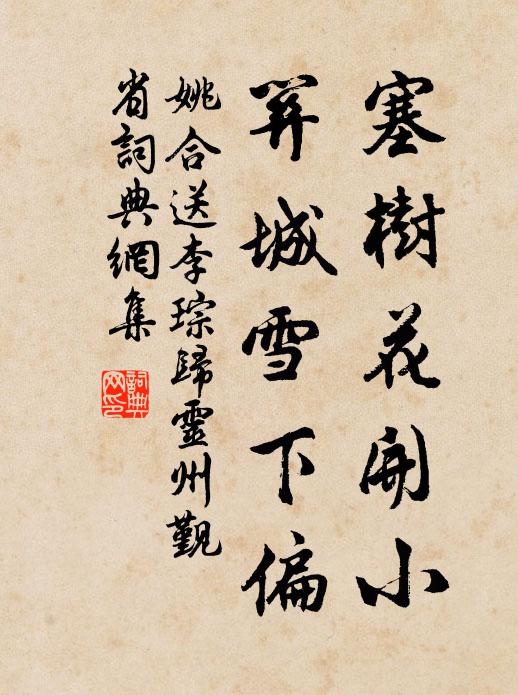 塞樹花開小
笄城雪下偏
姚合送李琮歸靈州覲
省詞典網集
詞典
网印